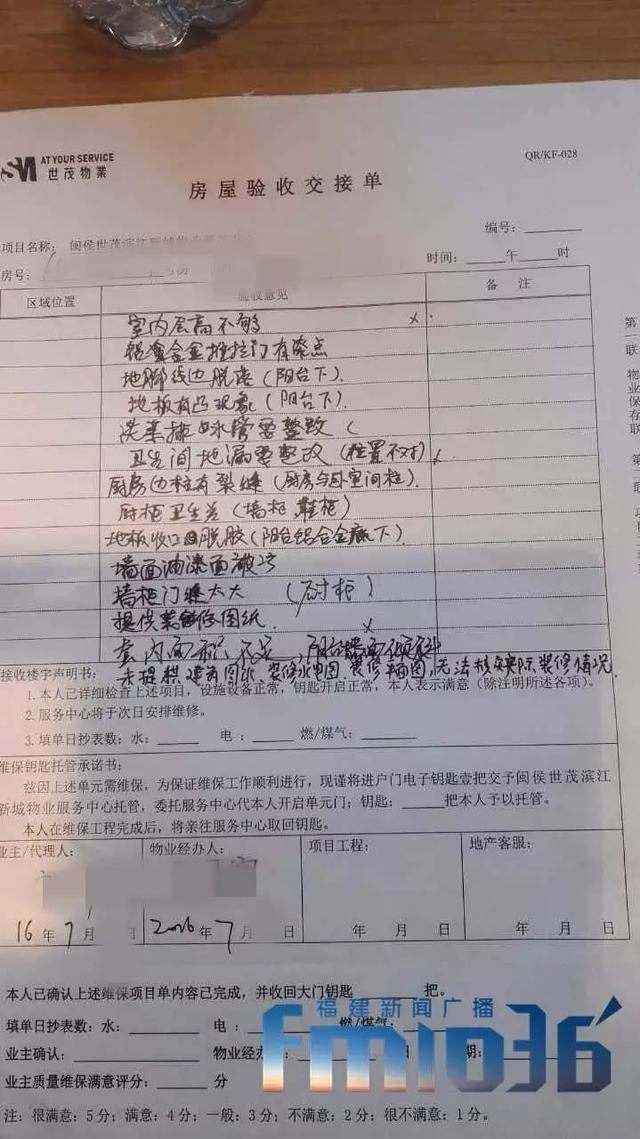 SM AT YOUR SERVICE
世茂物業
QR/KF-028
房屋验收交接单
编号:
项目名称: 闽侯世茂滨江新城
房号:
时间: 午 时
区域位置 验收意见 备 注
室内层高不够 ×
铝合金推拉门有
地脚线边脱落(阳台下).
地板有凸现象(阳台下).
洗 管要整改(
卫生间地漏要整改(位置不对)
厨房边柱有裂缝(厨房与卧室间柱).
厨柜卫生差(墙柜,鞋柜)
地板收口 脱胶(阳台铝合金底下).
墙面油漆面破
墙柜门缝太大 (厨柜)
提供 图纸. ×
室内面积不足, 阳台墙面倾斜
未提供建筑图纸、装修水电图、装修 图,无法核实实际装修情况.
接收楼宇声明书:
1. 本人已详细检查上述项目,设施设备正常,钥匙开启正常,本人表示满意(除注明所述各项)。
2.服务中心将于次日安排维修。
3. 填单日抄表数:水: 电: 燃/煤气:
维保钥匙托管承诺书:
兹因上述单元需维保,为保证维保工作顺利进行,现谨将进户门电子钥匙壹把交予闽侯世茂滨江
新城物业服务中心托管,委托服务中心代本人开启单元门;钥匙: 把本人予以托管。
本人在维保工程完成后,将亲往服务中心取回钥匙。
业主/代理人: 物业经办人: 项目工程: 地产客服:
16年7月 日 2016年7月 日 年 月 日 年 月 日
本人已确认上述维保项目单内容已完成,并收回大门钥匙 把。
填单日抄表数:水: 电: 燃/煤气:
业主确认: 物业经办 日 期:
业主质量维保满意评分: 分
注:很满意:5分;满意:4分;一般:3分;不满意:2分;很不满意:1分。
第一联 物业保存联 第
福建新闻广播
fm1036